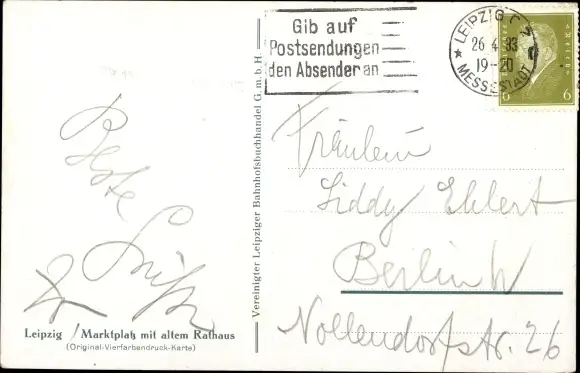 Gib auf
Postsendungen
den Absender an
LEIPZIG C
26.4.33
19-20
MESSESTADT
6 6
Beste
Grüße
Fräulein
Liddy Ehlert
Berlin W
Nollendorfstr. 26
Vereinigter Leipziger Bahnhofsbuchhandel G.m.b.H.
Leipzig / Marktplatz mit altem Rathaus
(Original-Vierfarbendruck-Karte)